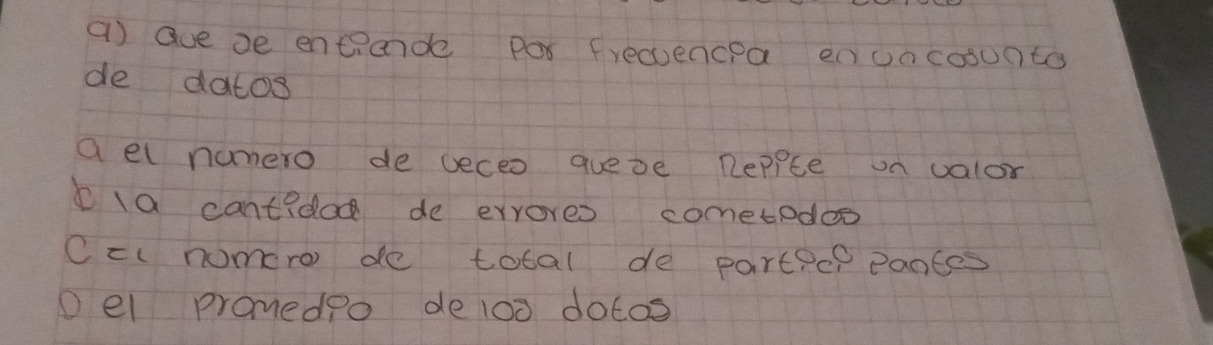 a) Que se entiende por frecuencia en un cosunto
de datos
a el numero de veces que se Repite un valor
b la cantidad de errores cometedos
C El numero de total de partici pantes
D el promedio de los datos